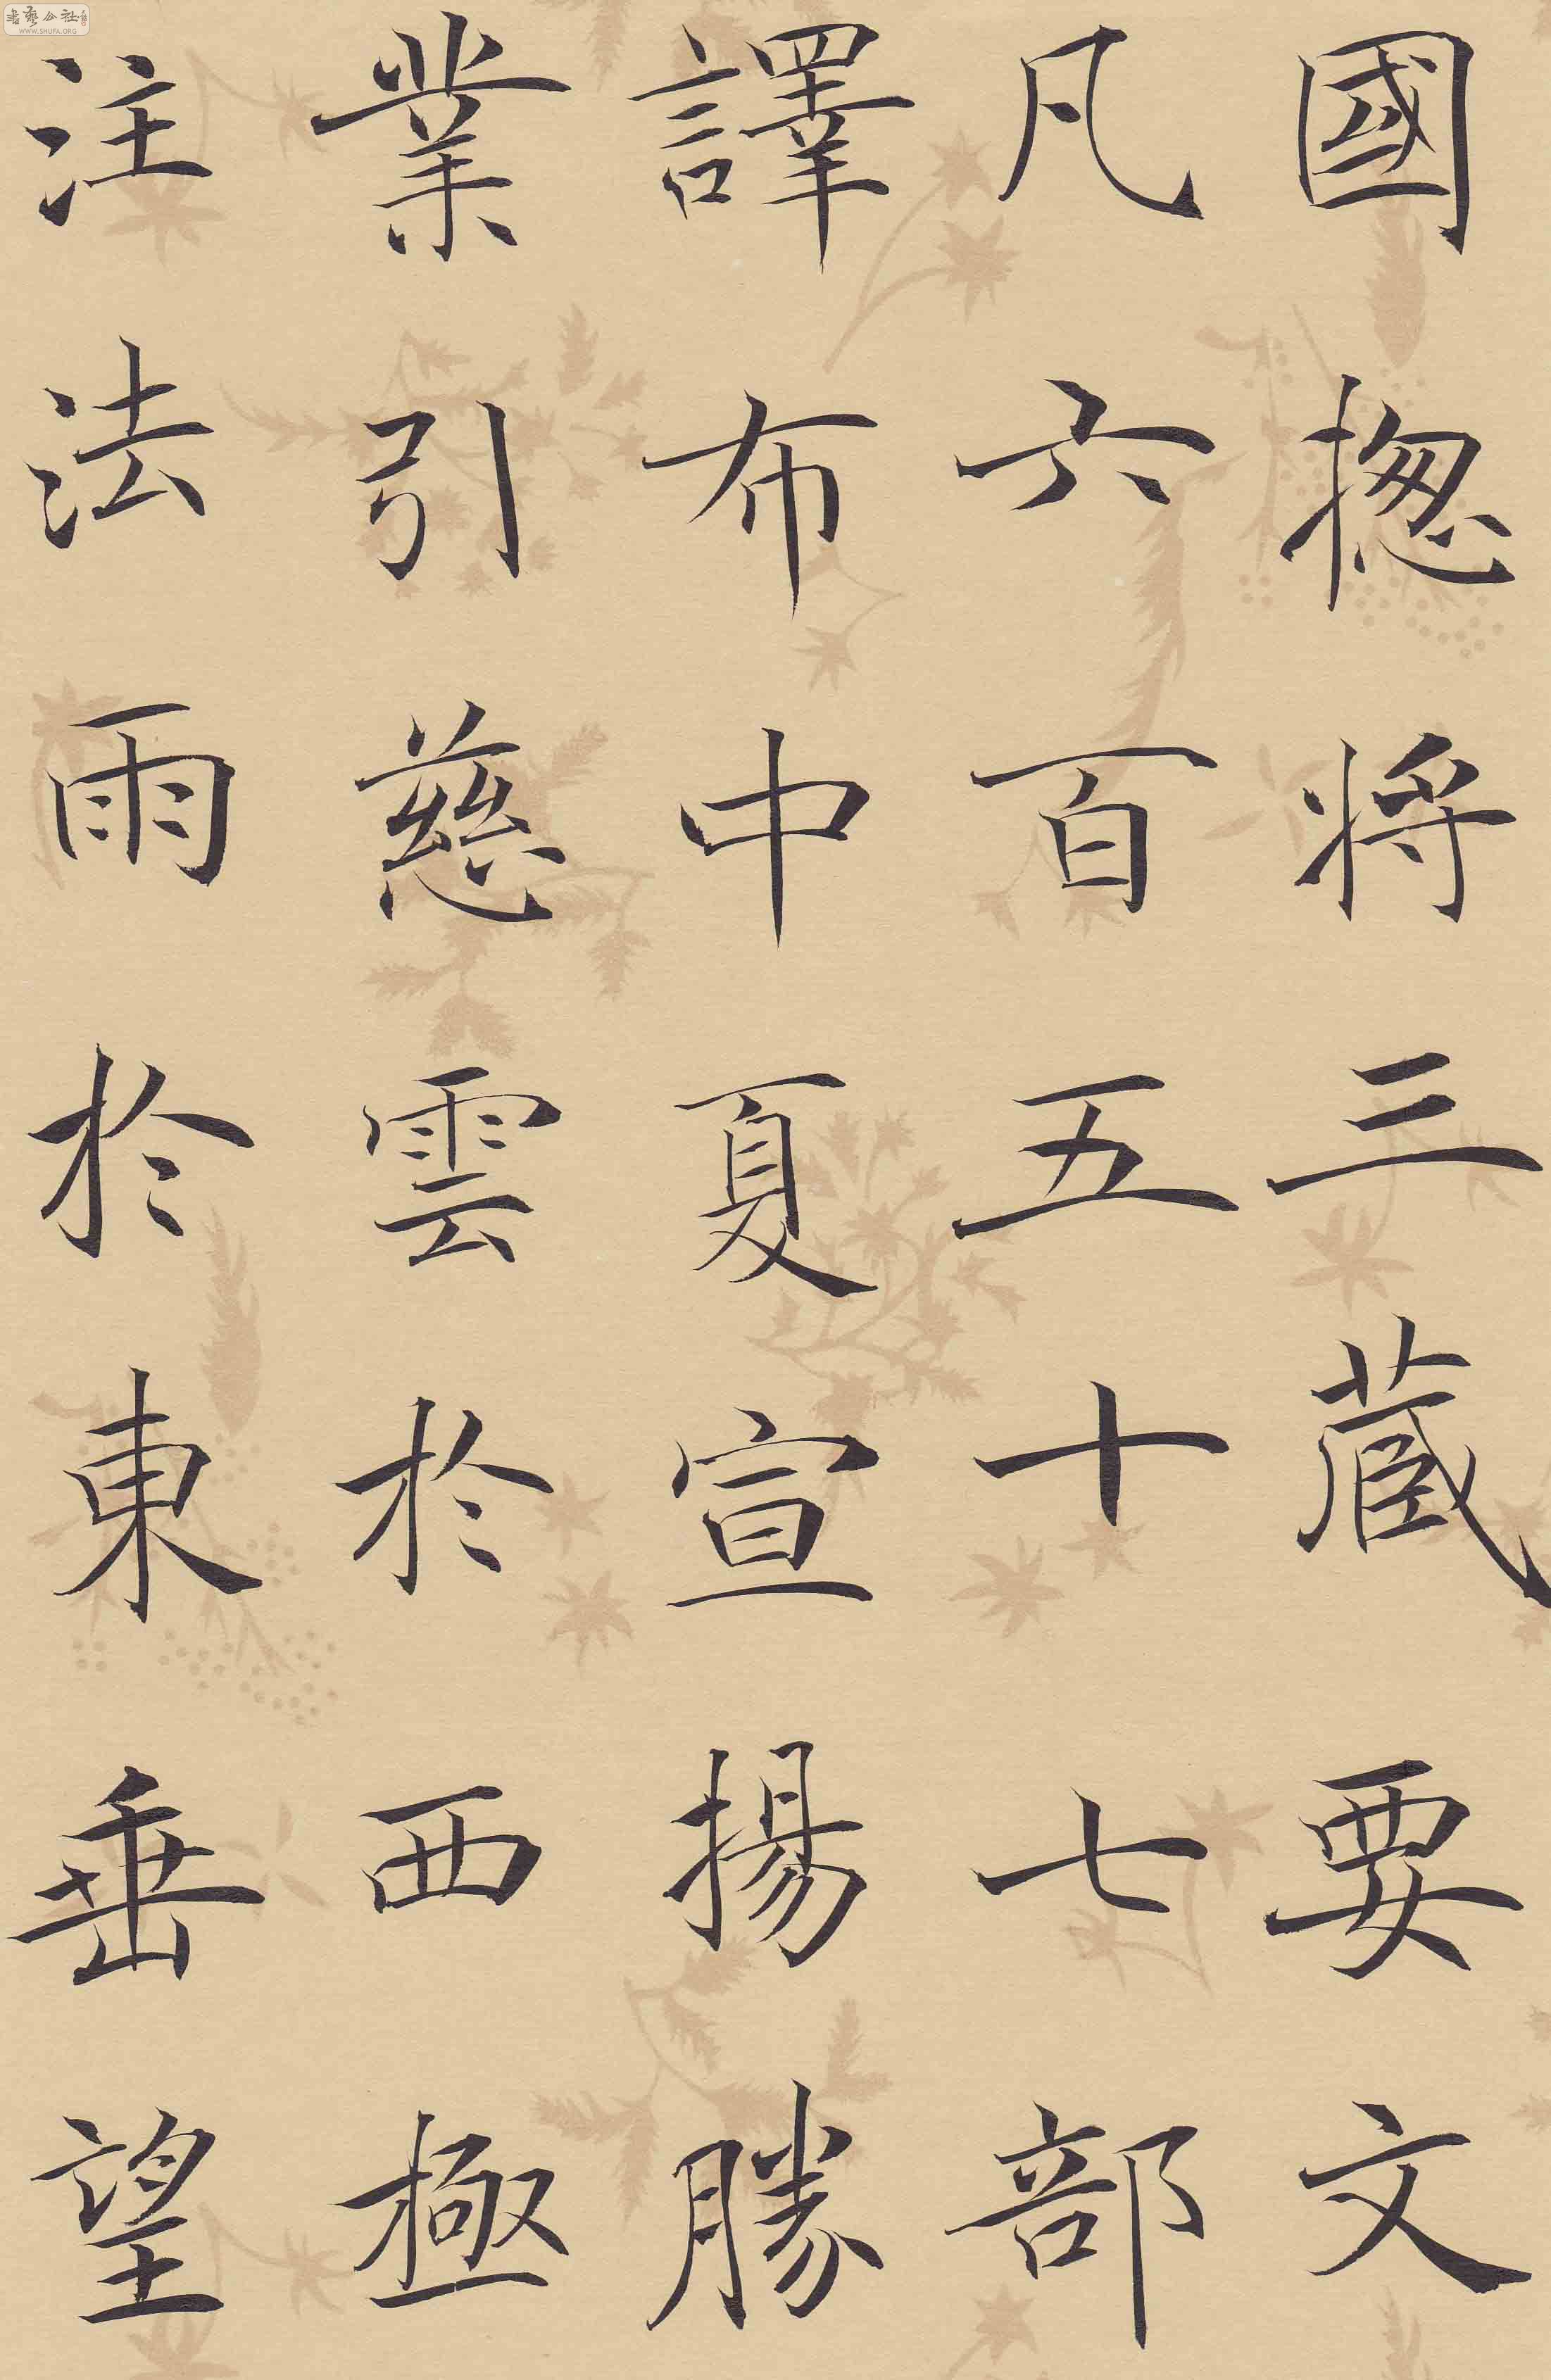 國揔將三藏要文
凡六百五十七部
譯布中夏宣揚勝
業引慈雲於西極
注法雨於東垂望
書藝公社
WWW.SHUFA.ORG